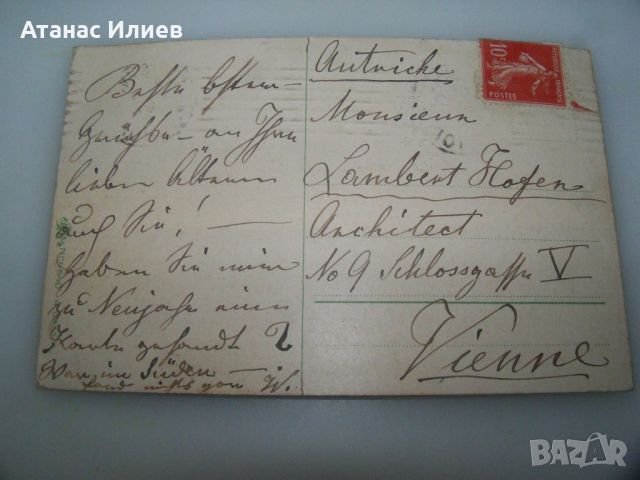 Атанас Илиев
Beste Oster-
Grüße - an Ihre
lieben Ältern
und Sie! -
haben Sie mir
zu Neujahr eine
Karte gesandt?
War im Süden -
fand nichts von W.
Autriche
Monsieur
Lambert Hofer
Architect
No 9 Schlossgasse V
Vienne
10c
POSTES
BAZAR